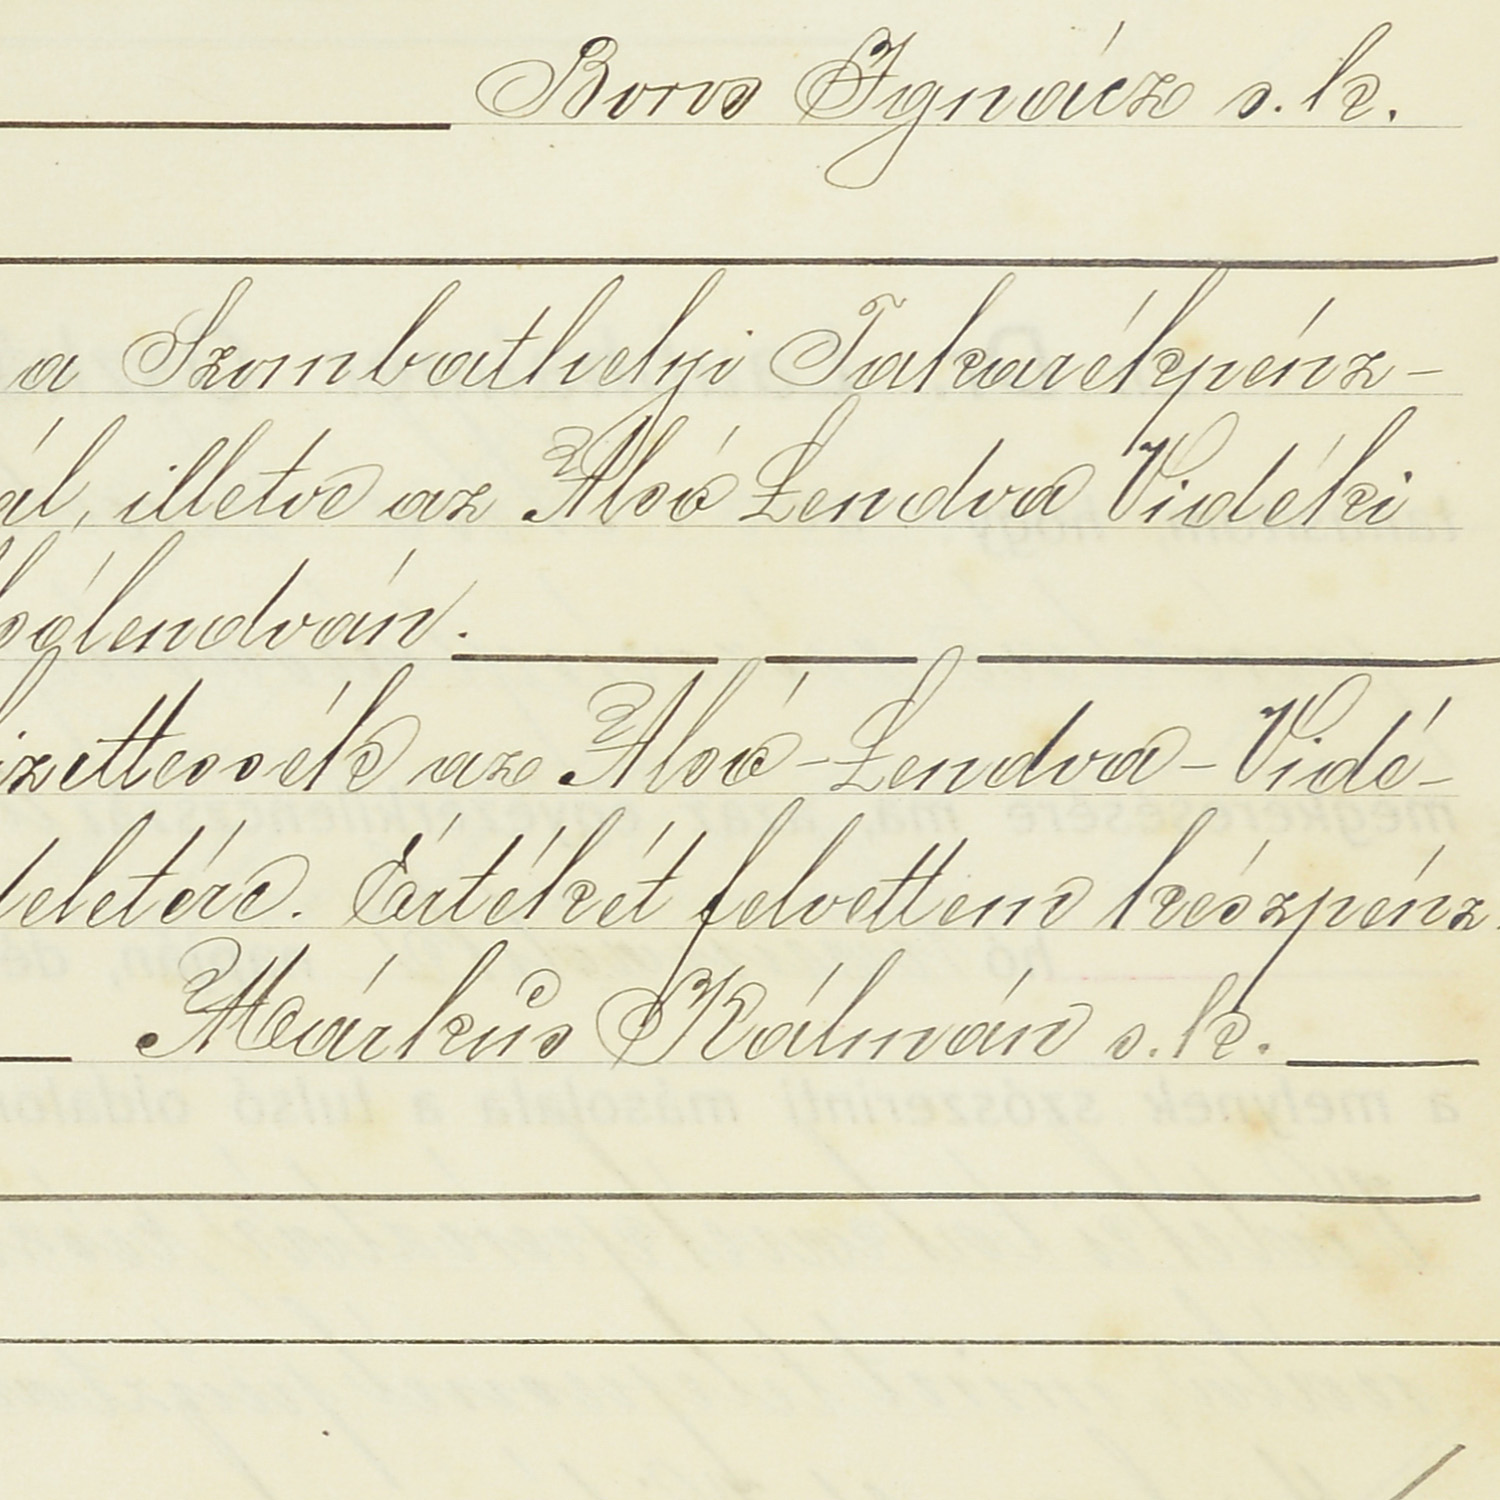 Boros Ignácz s. k.
a Szombathelyi Takarékpénz-
ál, illetve az Alsó Lendva Vidéki
lsólendván.
izettessék az Alsó-Lendva-Vidé-
deletére. Értékét felvettem készpénz.
Márkus Kálmán s. k.